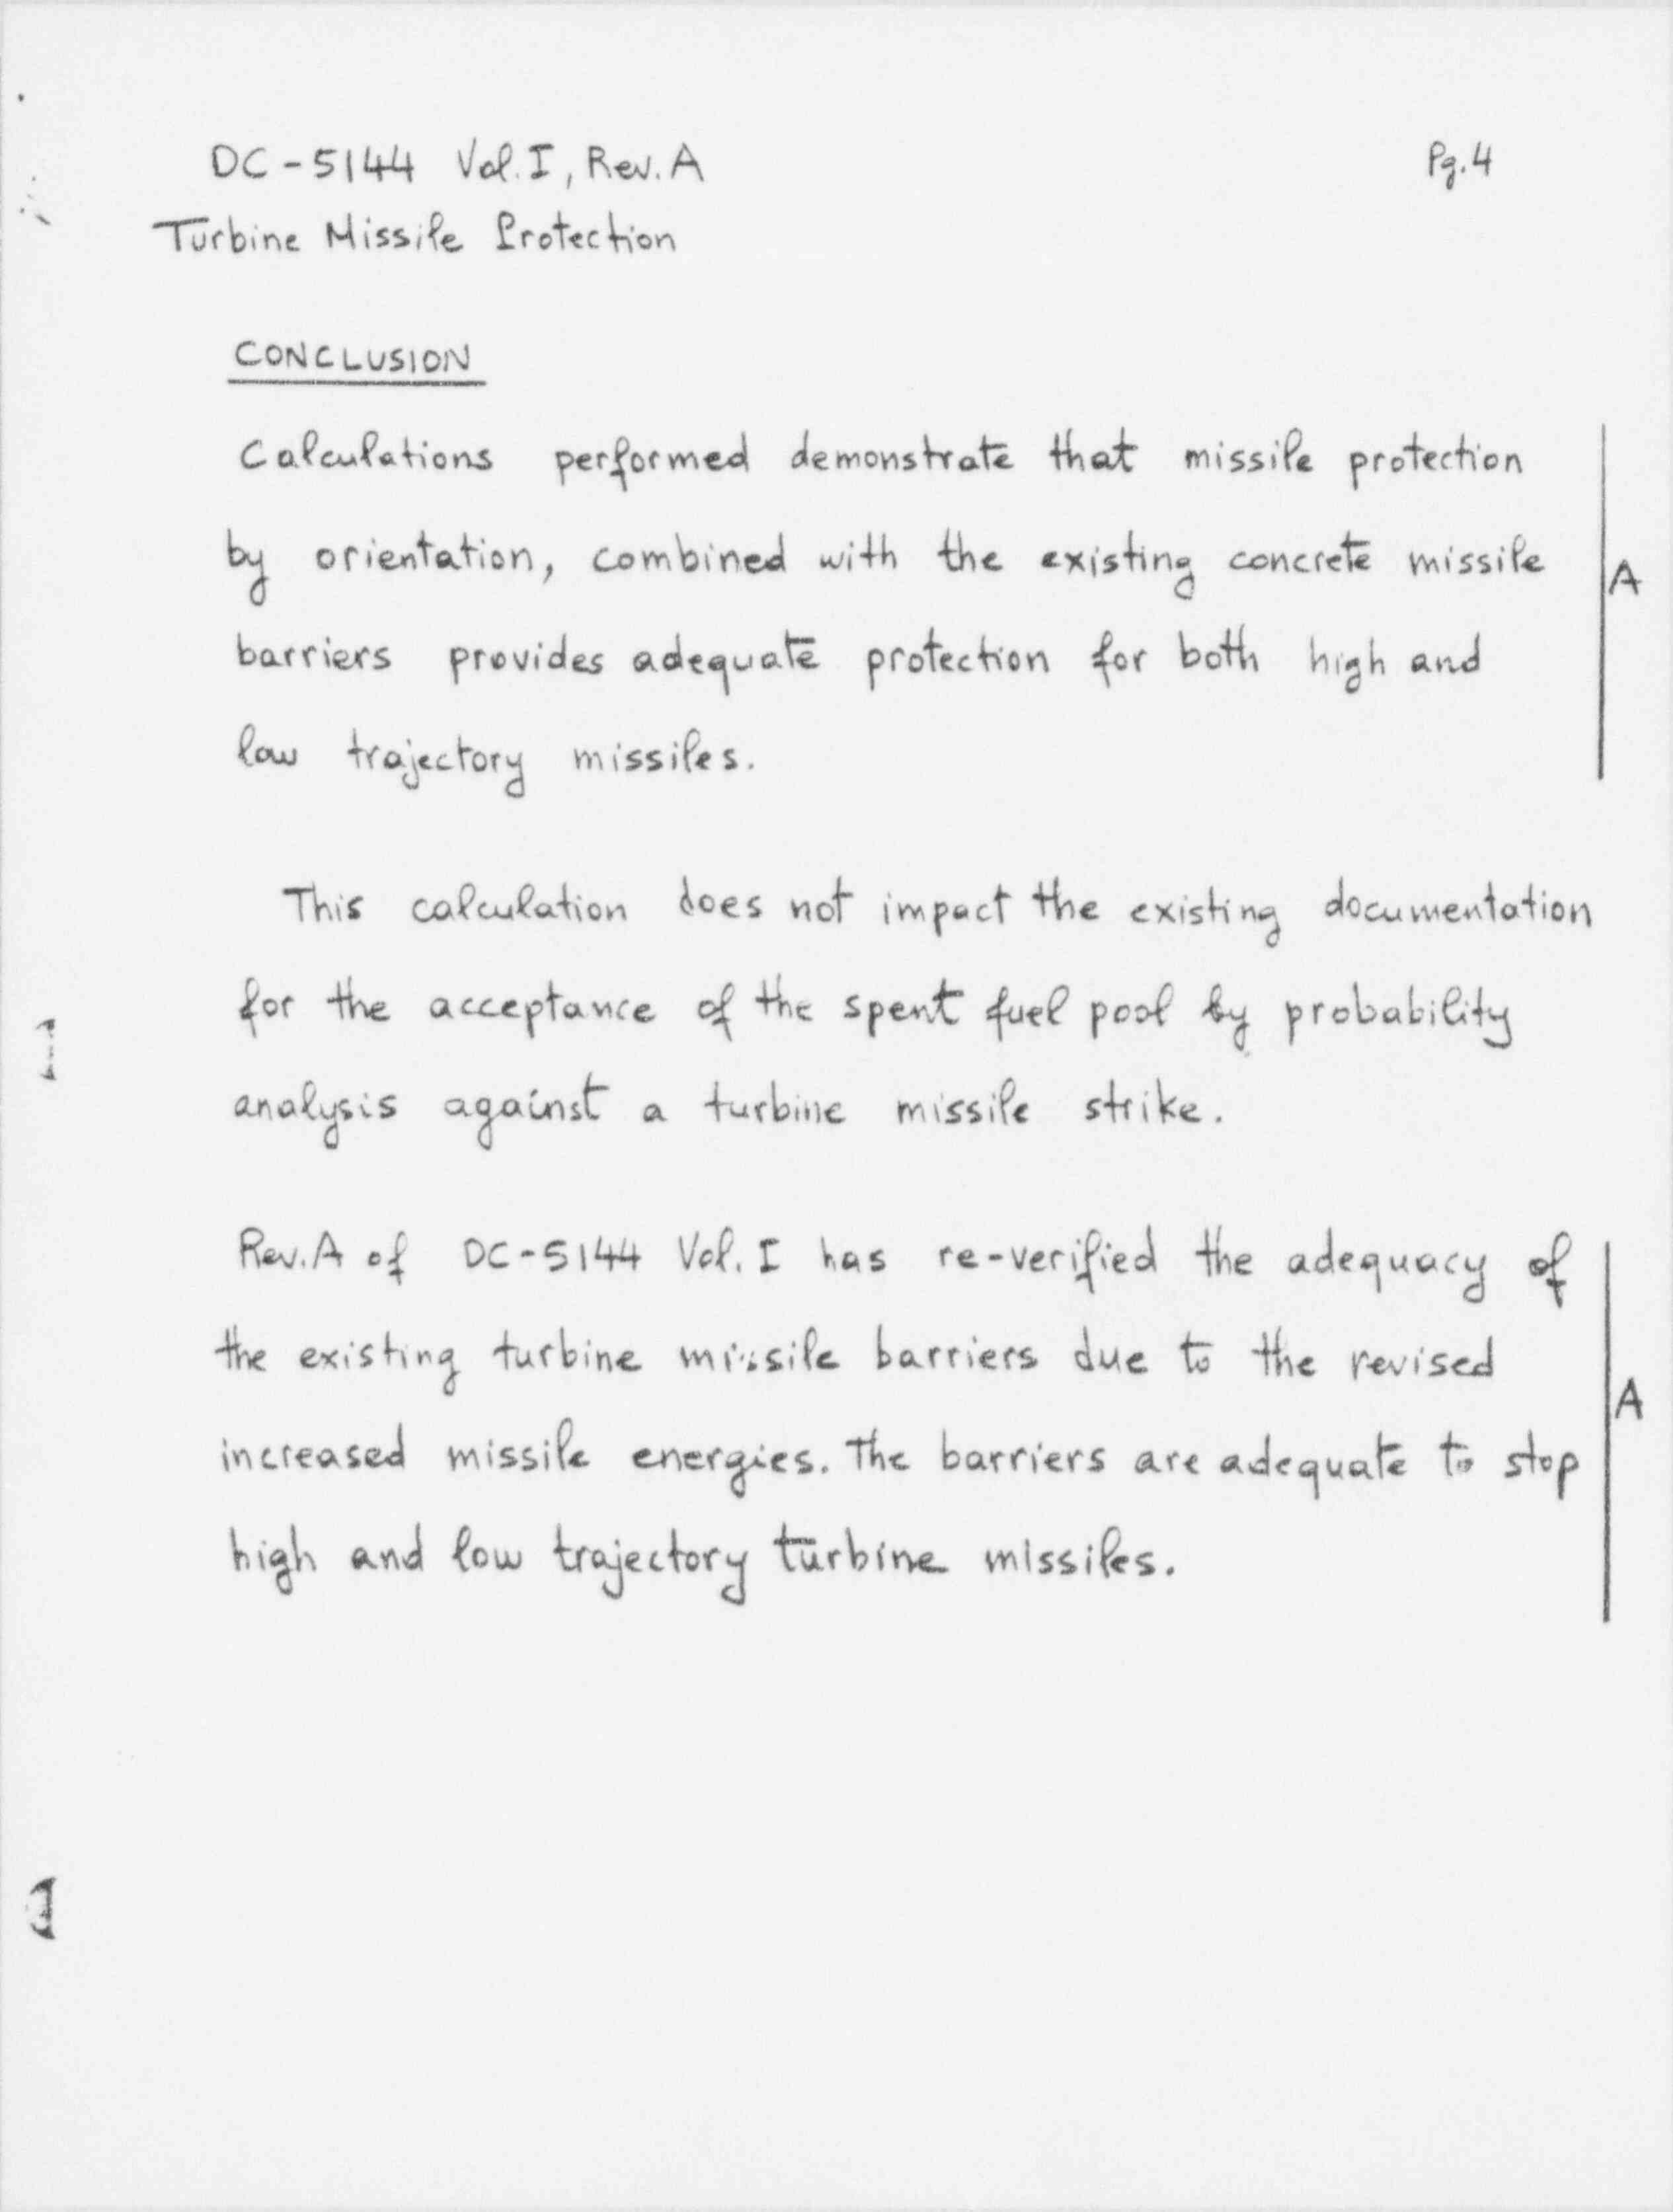 DC-5144 Vol. I, Rev. A
Pg. 4
Turbine Missile Protection
CONCLUSION
Calculations performed demonstrate that missile protection
by orientation, combined with the existing concrete missile
A
barriers provides adequate protection for both high and
low trajectory missiles.
This calculation does not impact the existing documentation
for the acceptance of the spent fuel pool by probability
analysis against a turbine missile strike.
Rev. A of DC-5144 Vol. I has re-verified the adequacy of
the existing turbine missile barriers due to the revised
A
increased missile energies. The barriers are adequate to stop
high and low trajectory turbine missiles.